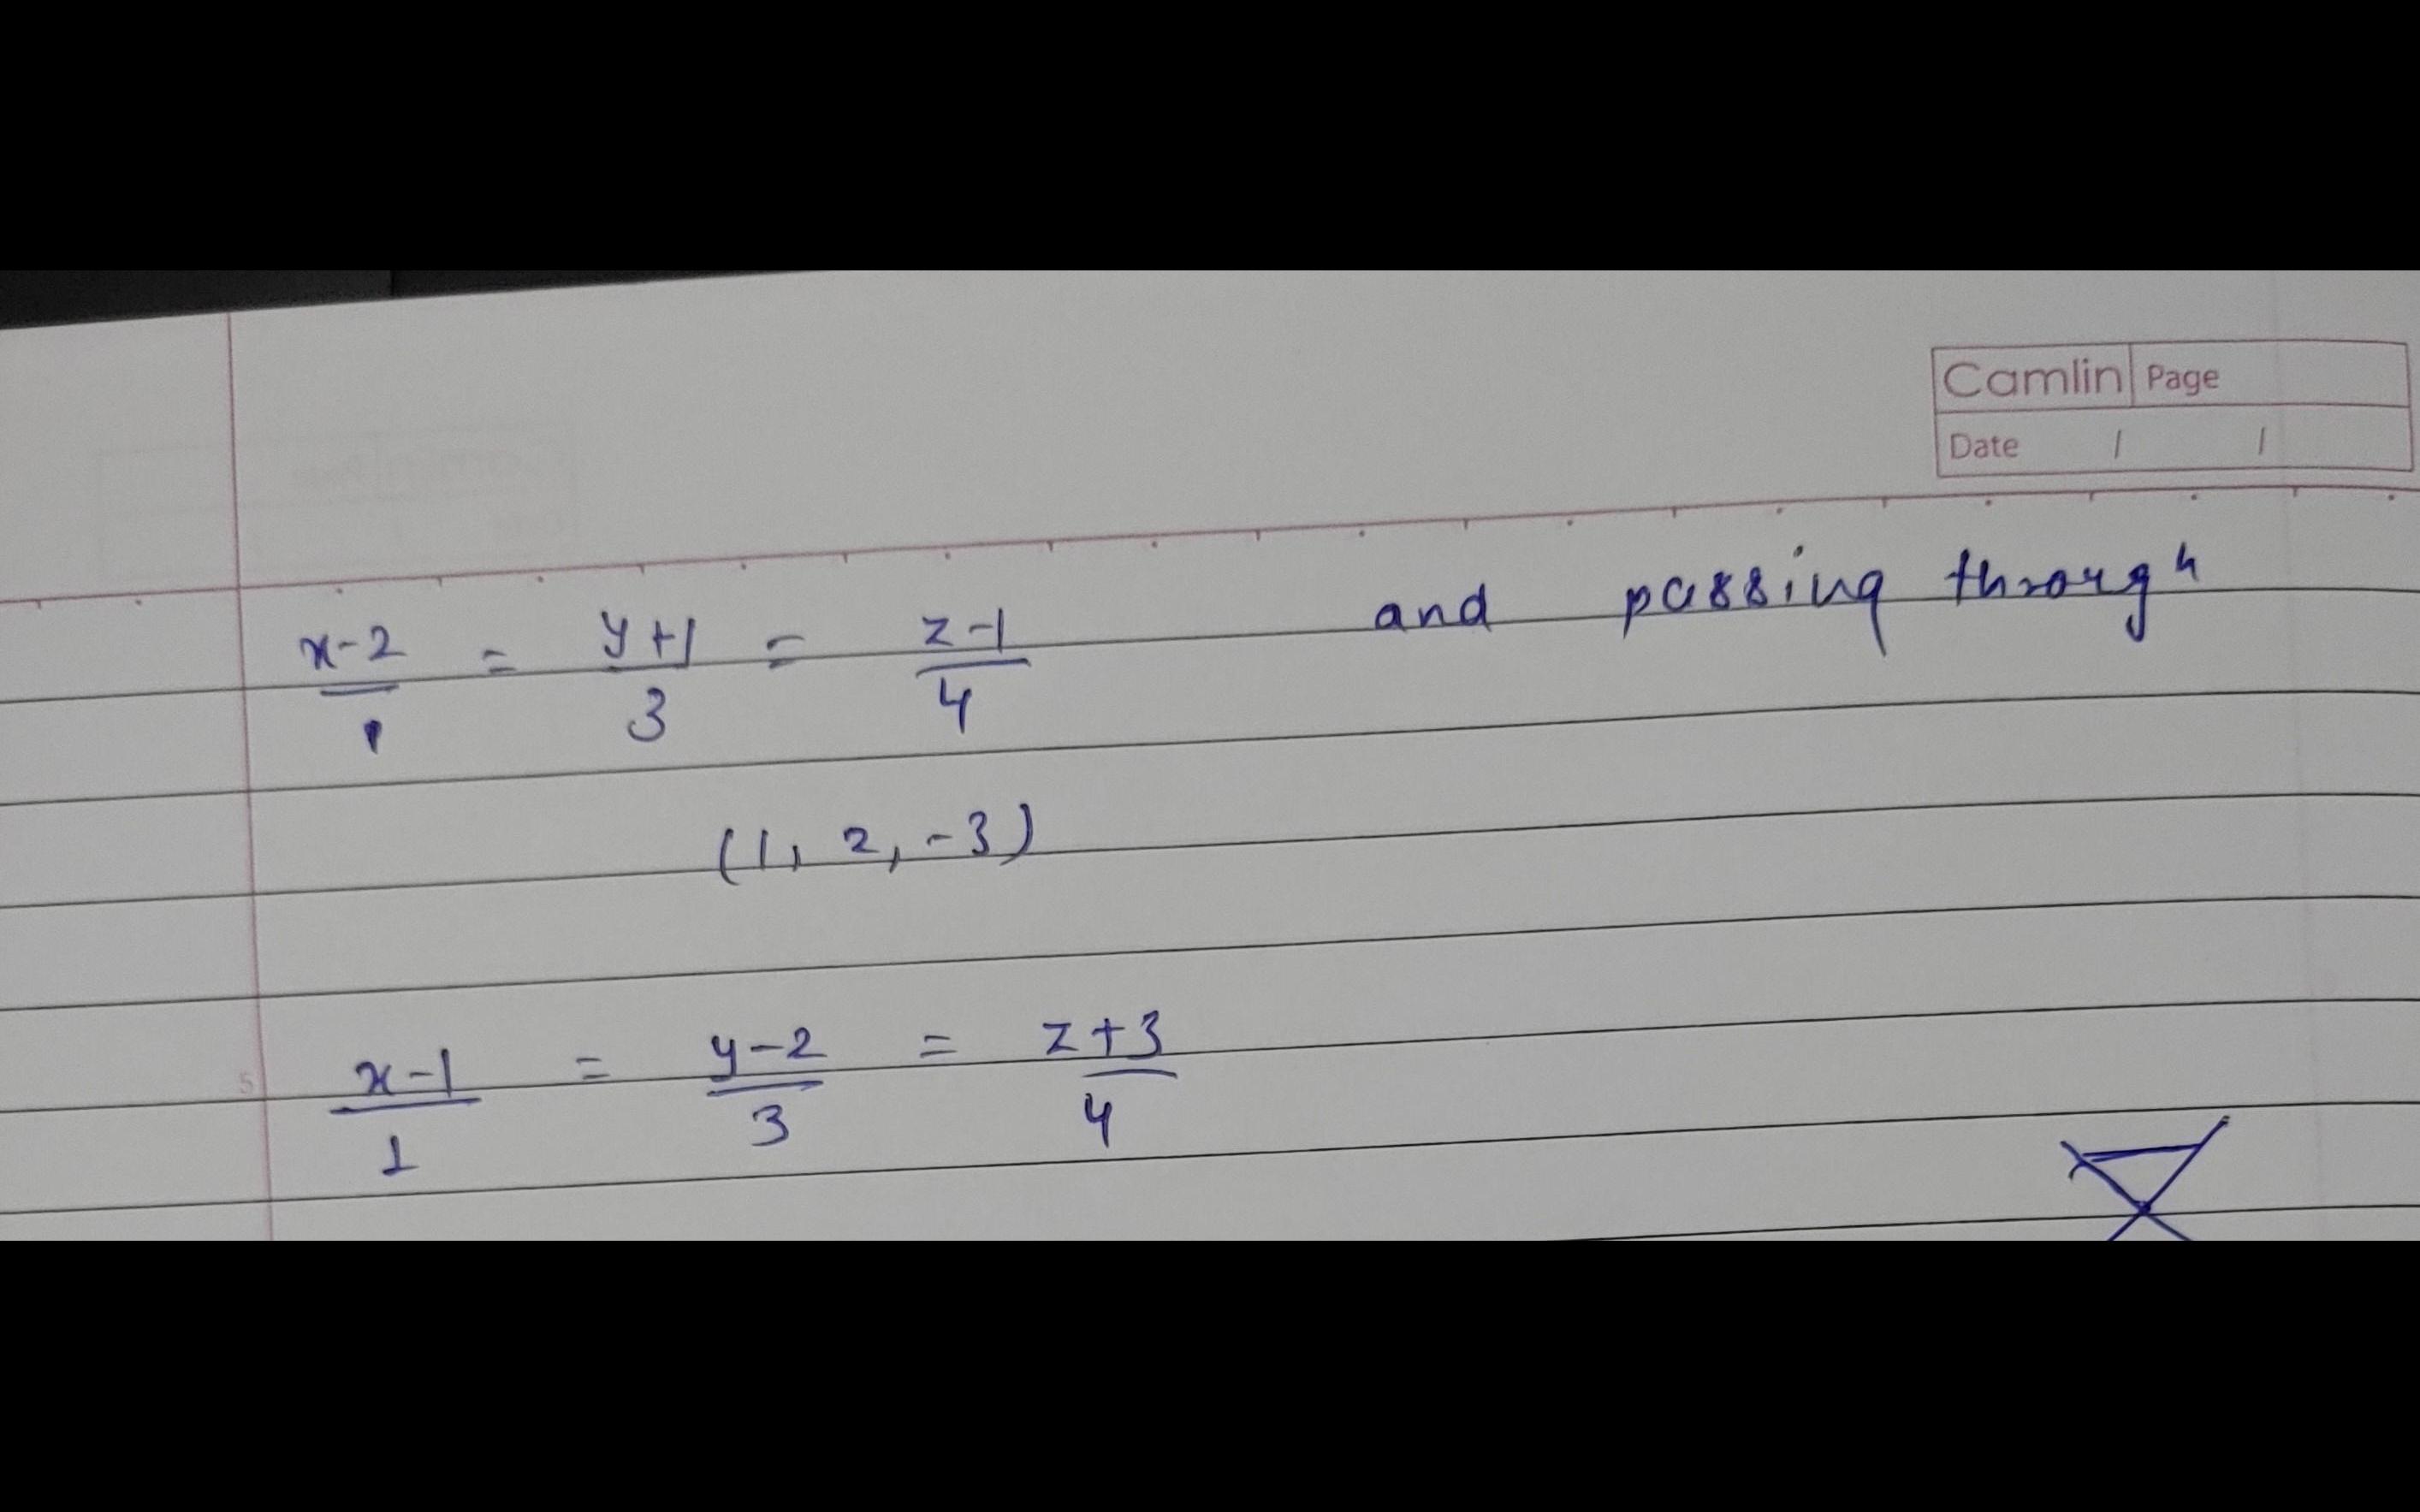 Camlin Page
Date / /
x-2/1 = y+1/3 = z-1/4 and passing through
(1, 2, -3)
5 x-1/1 = y-2/3 = z+3/4